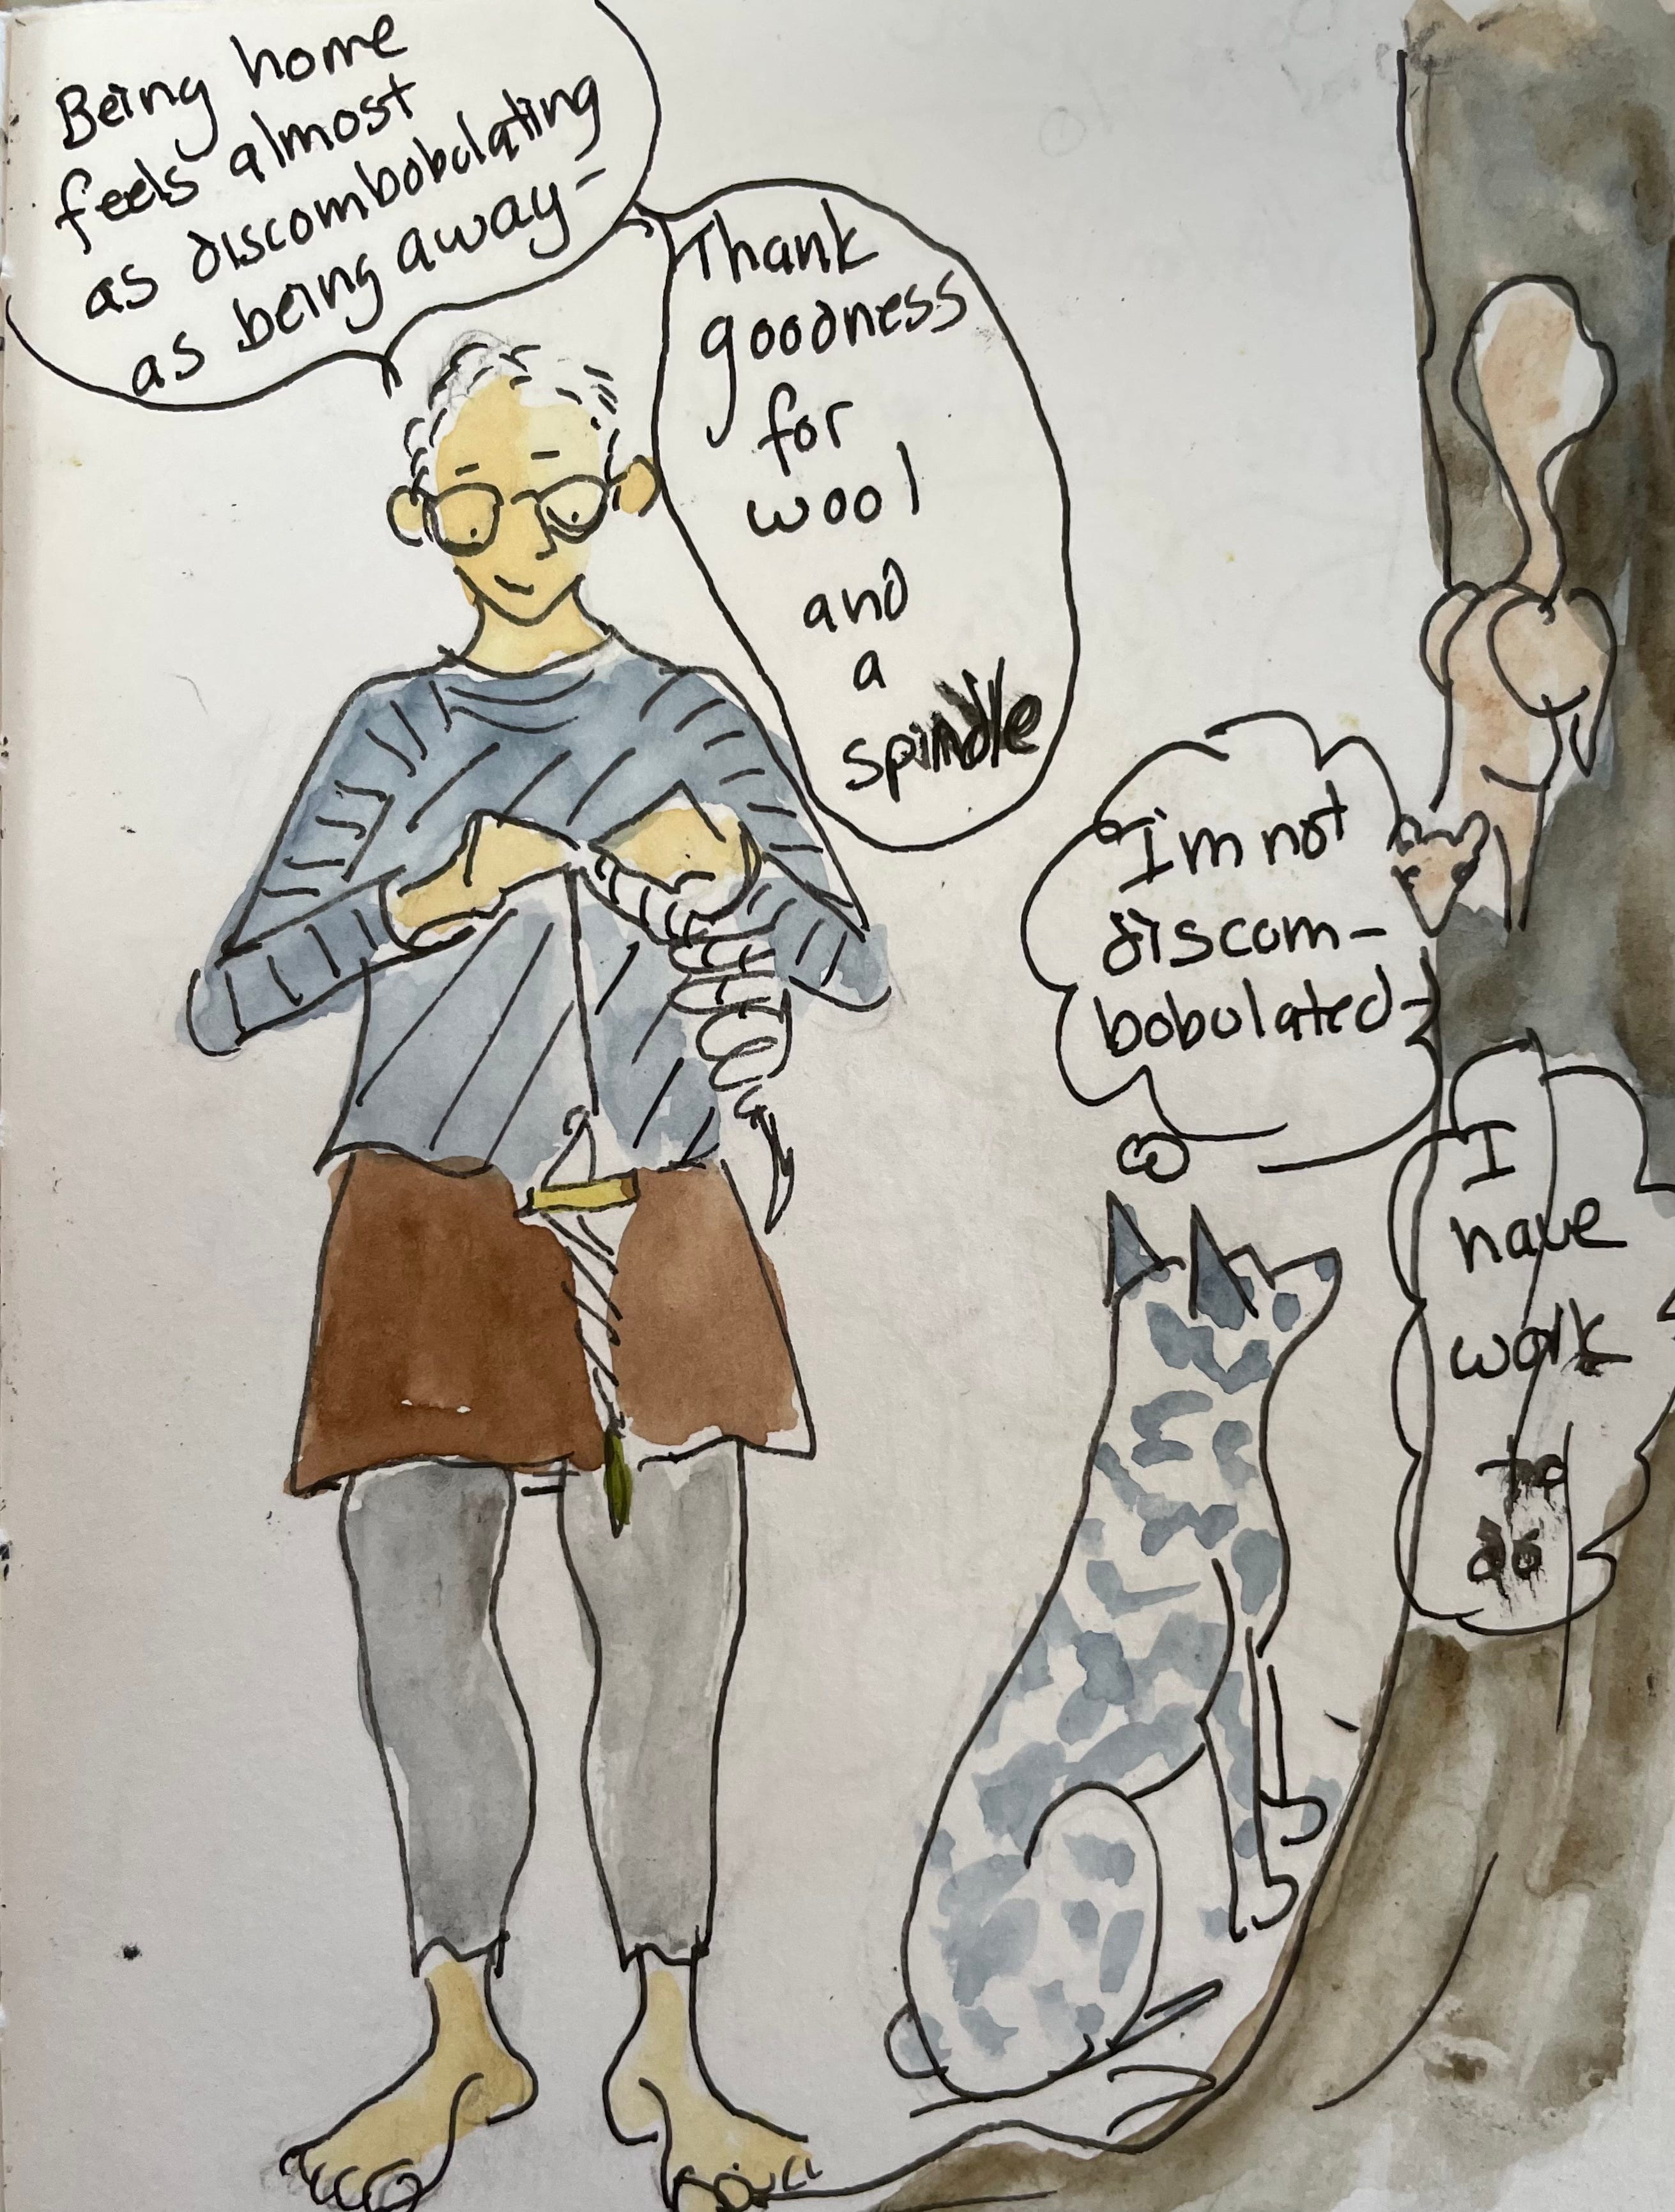 Being home
feels almost
as discombobulating
as being away-
Thank
goodness
for
wool
and
a
spindle
I'm not
discom-
bobulated-
I
have
work
to
do